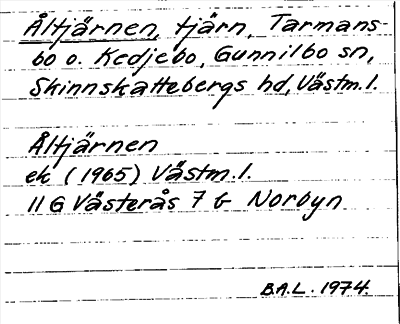 Åltjärnen, tjärn, Tarmans-
bo o. Kedjebo, Gunnilbo sn,
Skinnskattebergs hd, Västm.l.
Åltjärnen
ek (1965) Västm.l.
11 G Västerås 7 G Norbyn
B.A.L. 1974.